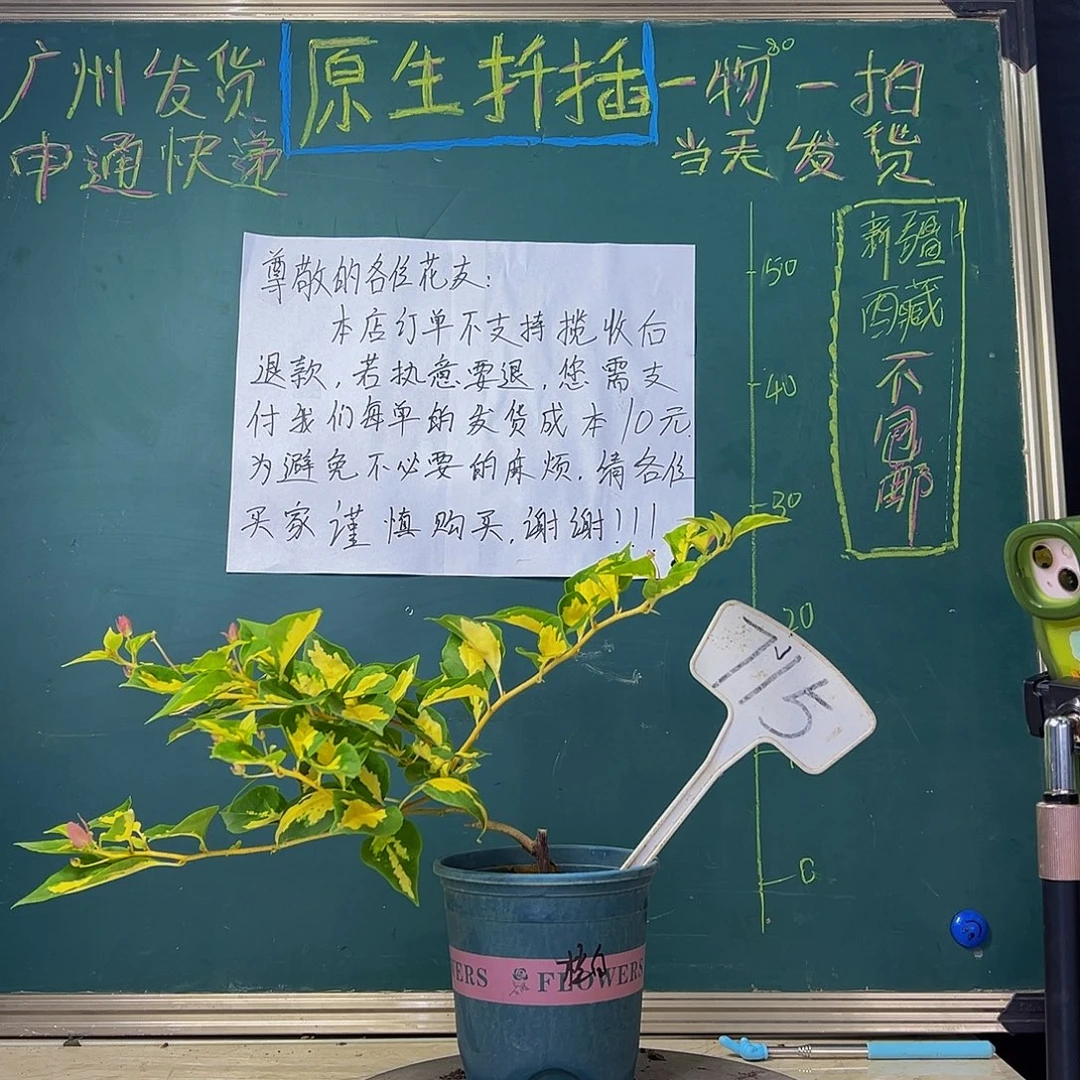 广州发货
原生扦插
一物一拍
申通快递
当天发货
新疆
西藏
不
包
邮
尊敬的各位花友:
本店订单不支持揽收后
退款,若执意要退,您需支
付我们每单的发货成本10元
为避免不必要的麻烦,请各位
买家谨慎购买,谢谢!!!
50
40
30
20
0
7115
FLOWERS